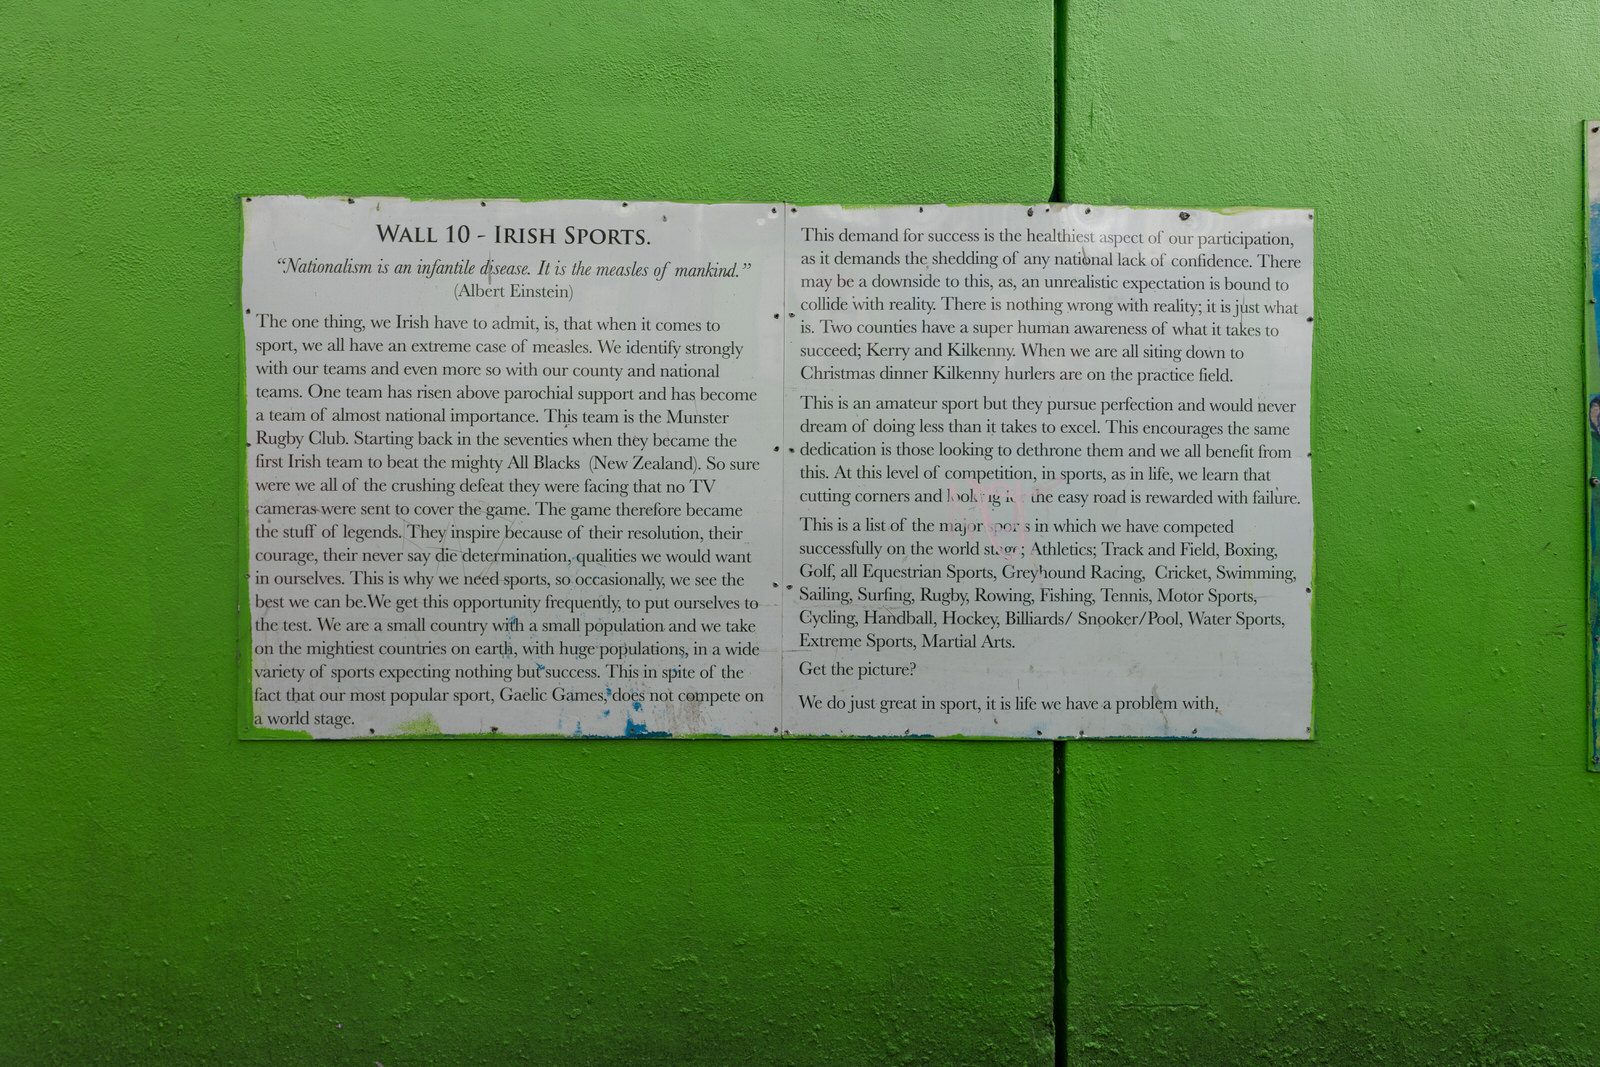 WALL 10 - IRISH SPORTS.
“Nationalism is an infantile disease. It is the measles of mankind.”
(Albert Einstein)
The one thing, we Irish have to admit, is, that when it comes to
sport, we all have an extreme case of measles. We identify strongly
with our teams and even more so with our county and national
teams. One team has risen above parochial support and has become
a team of almost national importance. This team is the Munster
Rugby Club. Starting back in the seventies when they became the
first Irish team to beat the mighty All Blacks (New Zealand). So sure
were we all of the crushing defeat they were facing that no TV
cameras were sent to cover the game. The game therefore became
the stuff of legends. They inspire because of their resolution, their
courage, their never say die determination, qualities we would want
in ourselves. This is why we need sports, so occasionally, we see the
best we can be.We get this opportunity frequently, to put ourselves to
the test. We are a small country with a small population and we take
on the mightiest countries on earth, with huge populations, in a wide
variety of sports expecting nothing but success. This in spite of the
fact that our most popular sport, Gaelic Games, does not compete on
a world stage.
This demand for success is the healthiest aspect of our participation,
as it demands the shedding of any national lack of confidence. There
may be a downside to this, as, an unrealistic expectation is bound to
collide with reality. There is nothing wrong with reality; it is just what
is. Two counties have a super human awareness of what it takes to
succeed; Kerry and Kilkenny. When we are all siting down to
Christmas dinner Kilkenny hurlers are on the practice field.
This is an amateur sport but they pursue perfection and would never
dream of doing less than it takes to excel. This encourages the same
dedication is those looking to dethrone them and we all benefit from
this. At this level of competition, in sports, as in life, we learn that
cutting corners and looking the easy road is rewarded with failure.
This is a list of the major sports in which we have competed
successfully on the world stage; Athletics; Track and Field, Boxing,
Golf, all Equestrian Sports, Greyhound Racing, Cricket, Swimming,
Sailing, Surfing, Rugby, Rowing, Fishing, Tennis, Motor Sports,
Cycling, Handball, Hockey, Billiards/ Snooker/Pool, Water Sports,
Extreme Sports, Martial Arts.
Get the picture?
We do just great in sport, it is life we have a problem with.